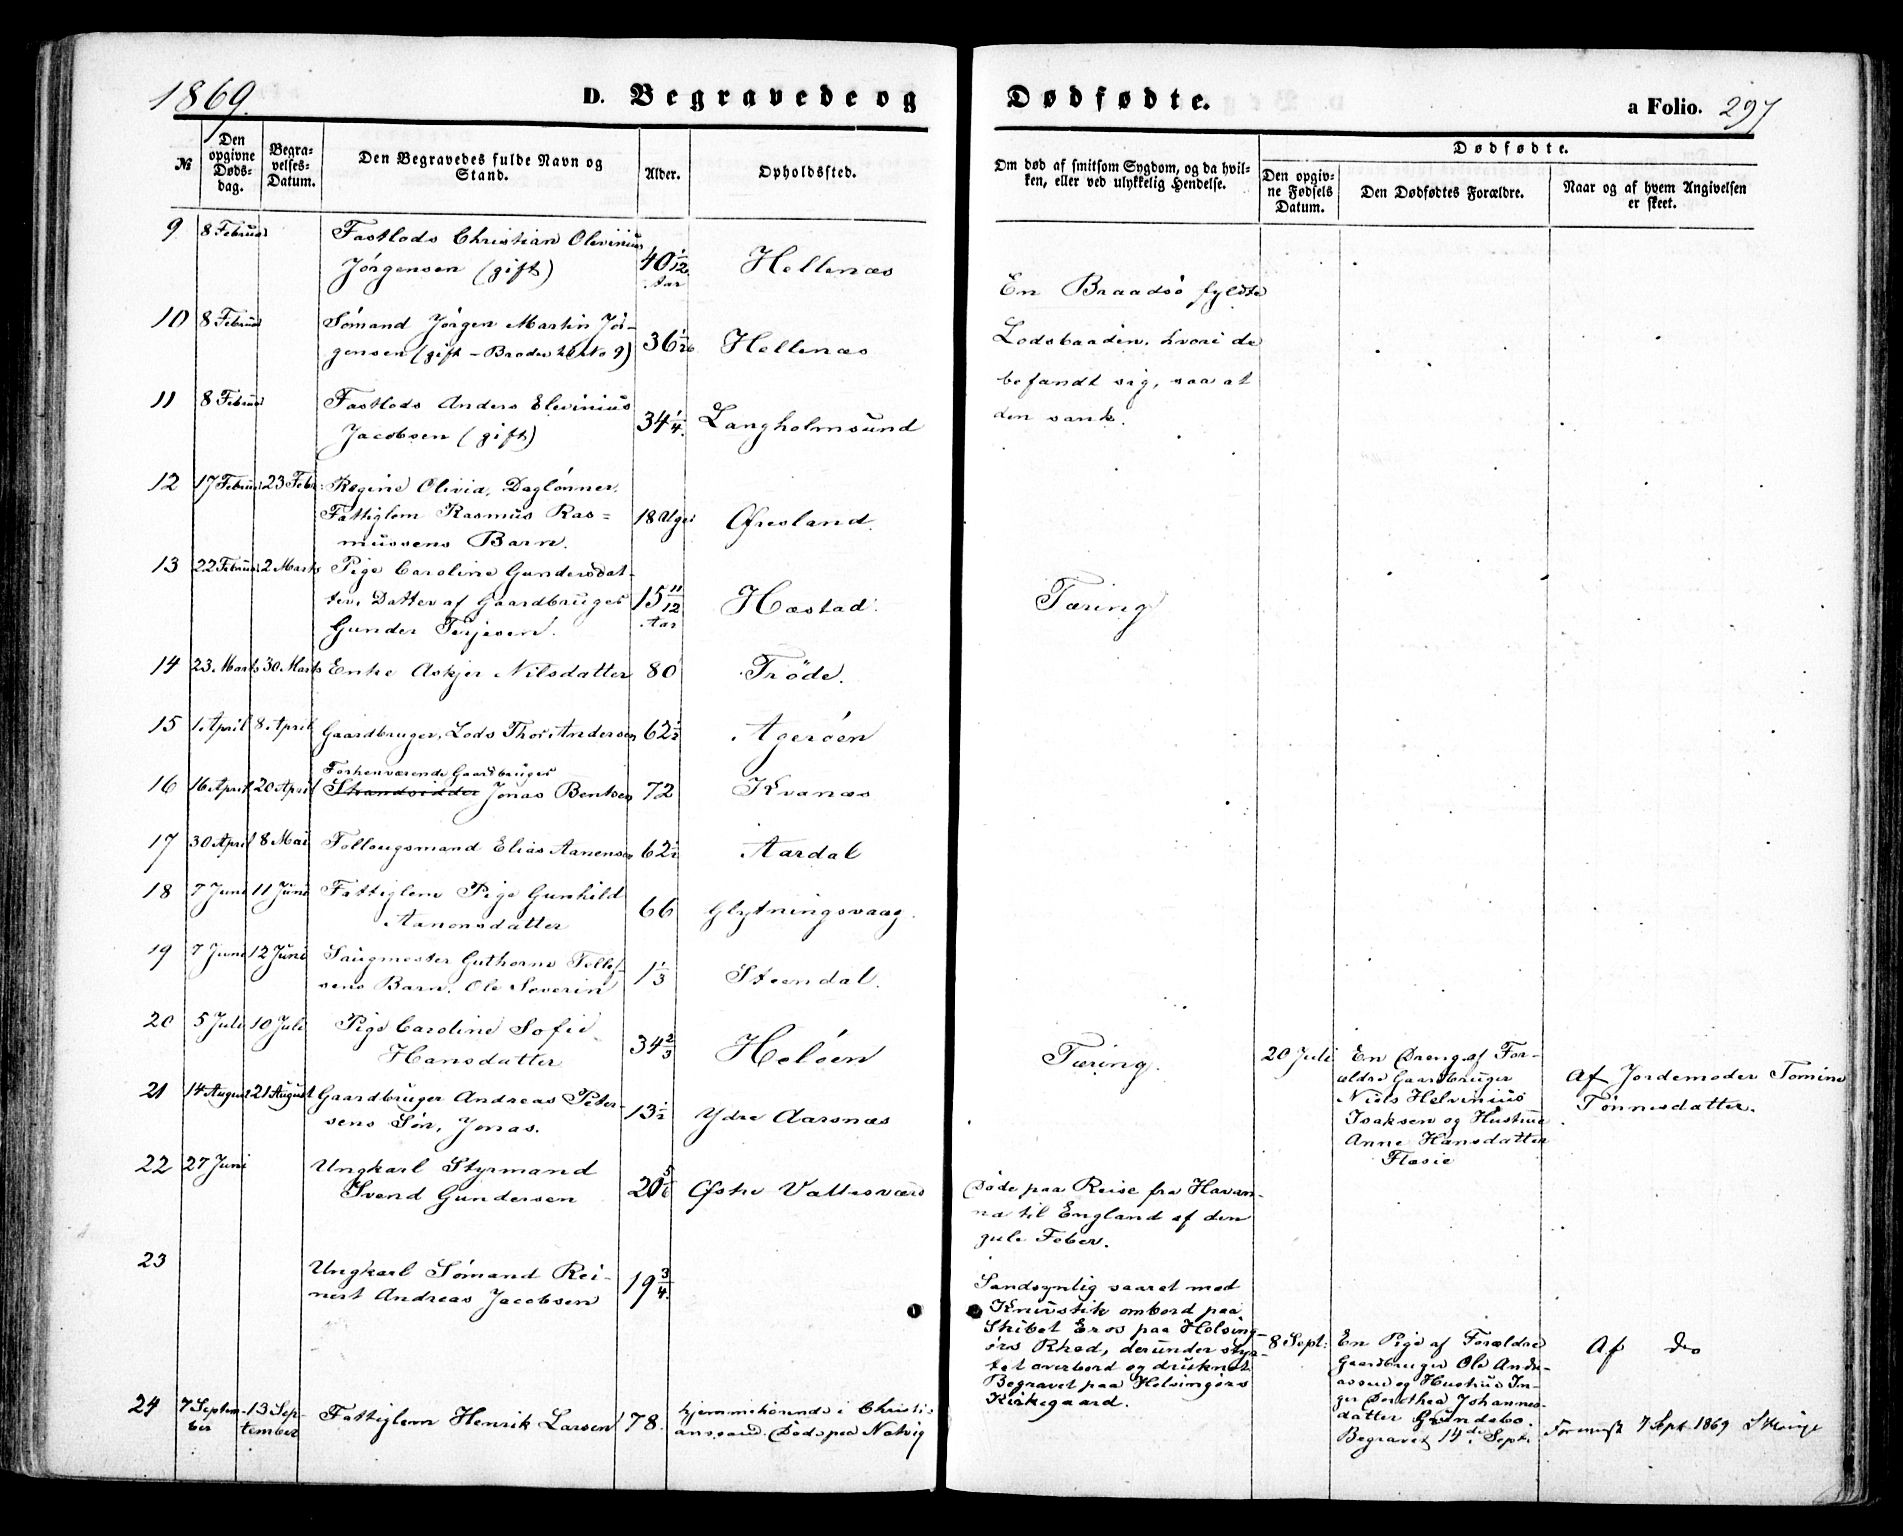 1869.
D. Begravede og
Dødfødte.
a Folio. 297
№
Den opgivne Døds-dag.
Begra-velses-Datum.
Den Begravedes fulde Navn og Stand.
Alder.
Opholdssted.
Om død af smitsom Sygdom, og da hvil-
ken, eller ved ulykkelig Hendelse.
Dødfødte.
Den opgiv-ne Fødsels Datum.
Den Dødfødtes Forældre.
Naar og af hvem Angivelsen er skeet.
9 8 Februar Fastlods Christian Olevinius 40 1/12 Aar Hellenæs
Jörgensen (gift)
En Braadsö fyldte
10 8 Februar Sömand Jörgen Martin Jör- 36 Hellenæs
gensen (gift - Broder til No 9)
Lodsbaaden, hvori de
befandt sig, saa at
11 8 Februar Fastlods Anders Elevinius 34 1/4. Langholmsund
Jacobsen (gift)
den sank.
12 17 Februar 23 Febr: Regine Olivia, Daglönner,
Fattiglem Rasmus Ras= 18 Uger Öresland.
mussens Barn.
13 22 Februar 2 Marts Pige Caroline Gundersdat-
ter, Datter af Gaardbruger 15 11/12 Aar Hæstad. Tæring
Gunder Terjesen.
14 23. Marts 30. Marts Enke Askjer Nilsdatter 80 Tröde.
15 1. April 8. April Gaardbruger, Lods Thor Andersen 62 1/2 Ageröen
Forhenværende Gaardbruger
16 16 April 20 April Strandsidder Jonas Bentsen 72 Kvanæs
17 30 April 8 Mai Follougsmand Elias Aanensen 62 1/2 Aardal
18 7 Juni 11 Juni Fattiglem Pige Gunhild 66 Glytningsvaag.
Aanensdatter
19 7 Juni 12 Juni Saugmester Guthorm Tellef- 1 1/3 Steendal.
sens Barn, Ole Severin
20 5 Juli 10 Juli Pige Caroline Sofie 34 2/3 Helöen Tæring.
Hansdatter
20 Juli En Dreng af For-
ældre Gaardbruger
Niels Helvinius
Isaksen og Hustrue
Anne Hansdatter
Flæsie
Af Jordemoder Tomine
Tönnesdatter.
21 14 August 21 August Gaardbruger Andreas Peter- 13 1/2 Ydre Aarsnæs
sens Sön, Jonas.
22 27 Juni Ungkarl Styrmand 20 5/6 Östre Vallesværd
Svend Gundersen
Döde paa Reise fra Havan-
na til England af den
gule Feber.
23 Ungkarl Sömand Rei- 19 3/4.
nert Andreas Jacobsen
Sandsynlig saaret med
Knivstik ombord paa
Skibet Eros paa Helsing-
örs Rhed, derunder styr-
tet overbord og druknet.
Begravet paa Helsingörs
Kirkegaard.
8 Sept: En Pige af Forældre
Gaardbruger Ole Andr-
assen og Hustrue In-
ger Dorothea Johannes-
datter Grundebo.
Begravet 14de Septr
Af do
24 7 Septem-ber 13 Sep-tember Fattiglem Henrik Larsen 78. hjemmehörende i Christi-
ansand. Död paa Natvig
7 Sept 1869